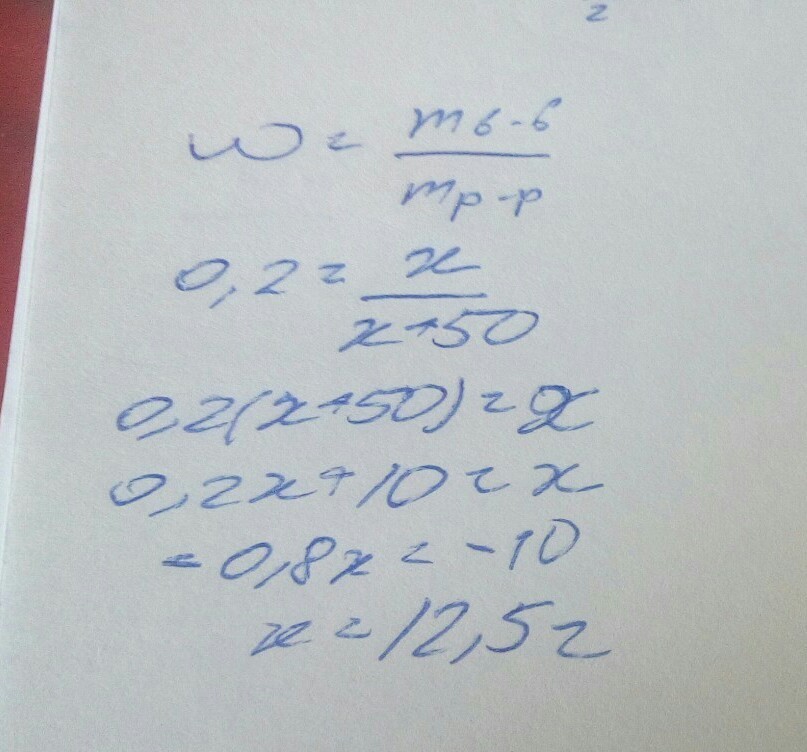 г
ω = mв-в / mр-р
0,2 = x / x+50
0,2(x+50) = x
0,2x+10 = x
-0,8x = -10
x = 12,5г